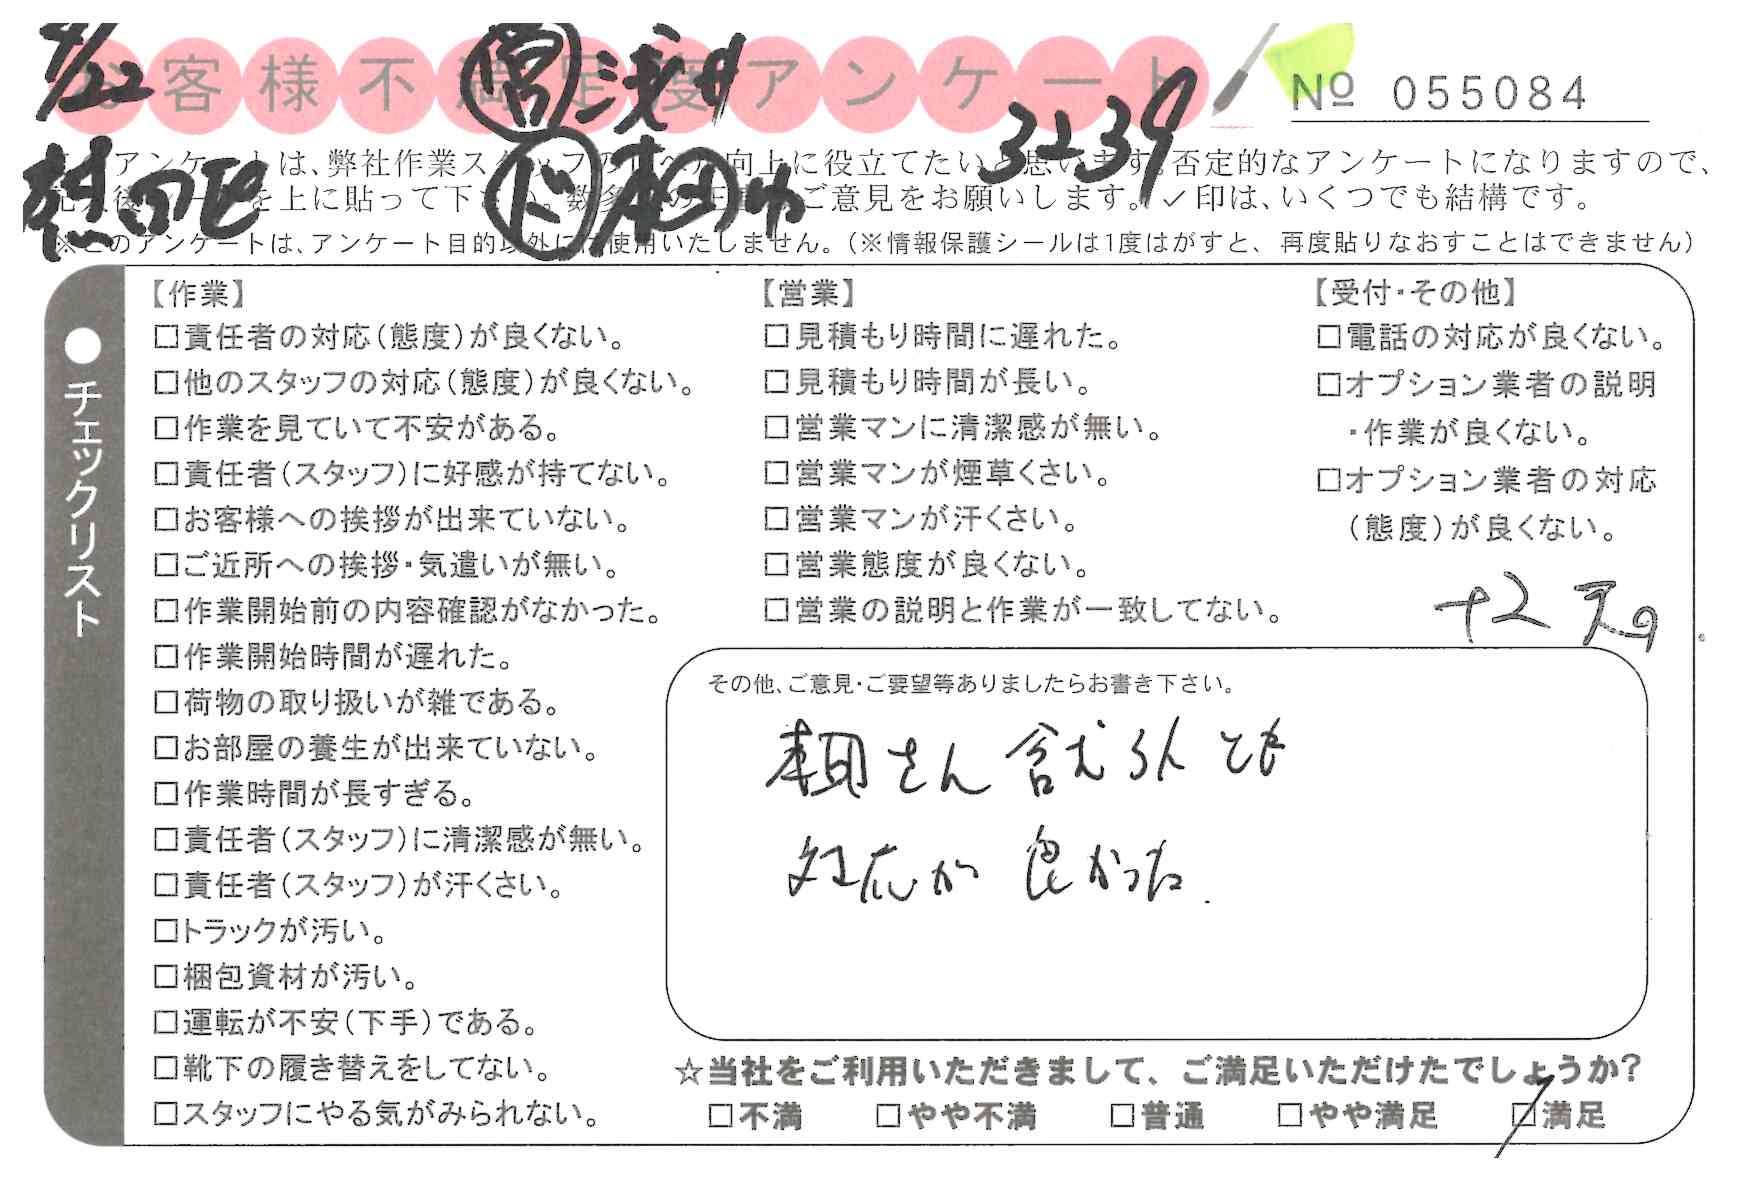 4/22
お客様不満足度アンケート
営 浅井
№ 055084
3239
ド 本田ゆ
アンケートは、弊社作業スタッフの 向上に役立てたいと思います。否定的なアンケートになりますので、
後 を上に貼って下さい。数多 の ご意見をお願いします。✓印は、いくつでも結構です。
※このアンケートは、アンケート目的以外には使用いたしません。(※情報保護シールは1度はがすと、再度貼りなおすことはできません)
●チェックリスト
【作業】
□責任者の対応(態度)が良くない。
□他のスタッフの対応(態度)が良くない。
□作業を見ていて不安がある。
□責任者(スタッフ)に好感が持てない。
□お客様への挨拶が出来ていない。
□ご近所への挨拶・気遣いが無い。
□作業開始前の内容確認がなかった。
□作業開始時間が遅れた。
□荷物の取り扱いが雑である。
□お部屋の養生が出来ていない。
□作業時間が長すぎる。
□責任者(スタッフ)に清潔感が無い。
□責任者(スタッフ)が汗くさい。
□トラックが汚い。
□梱包資材が汚い。
□運転が不安(下手)である。
□靴下の履き替えをしてない。
□スタッフにやる気がみられない。
【営業】
□見積もり時間に遅れた。
□見積もり時間が長い。
□営業マンに清潔感が無い。
□営業マンが煙草くさい。
□営業マンが汗くさい。
□営業態度が良くない。
□営業の説明と作業が一致してない。
【受付・その他】
□電話の対応が良くない。
□オプション業者の説明
・作業が良くない。
□オプション業者の対応
(態度)が良くない。
その他、ご意見・ご要望等ありましたらお書き下さい。
本田さん含む3人とも
対応が良かった.
☆当社をご利用いただきまして、ご満足いただけたでしょうか?
□不満 □やや不満 □普通 □やや満足 □満足